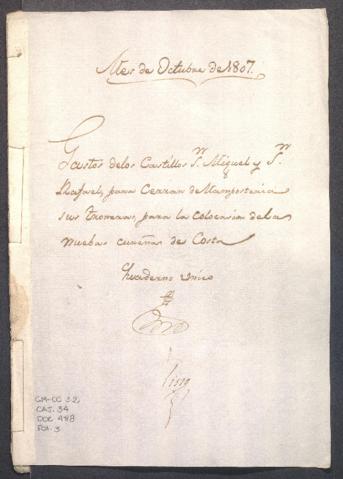 Mes de Octubre de 1807.
Gastos delos Castillos Sn. Miguel y Sn.
Rafael, para Cerrar de Mamposteria
sus troneras, para la colocasion de la
nuebas cureñas de Costa
Quaderno unico
CAJ. 34
DOC 488
FOJ. 3